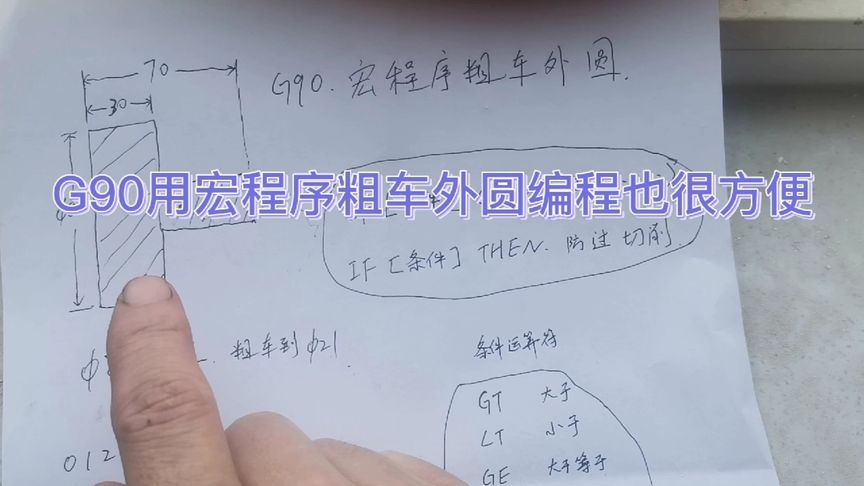 70
G90.宏程序粗车外圆.
30
G90用宏程序粗车外圆编程也很方便
IF [条件] THEN. 防过切削
粗车到 φ21
条件运算符
GT 大于
LT 小于
GE 大于等于
012